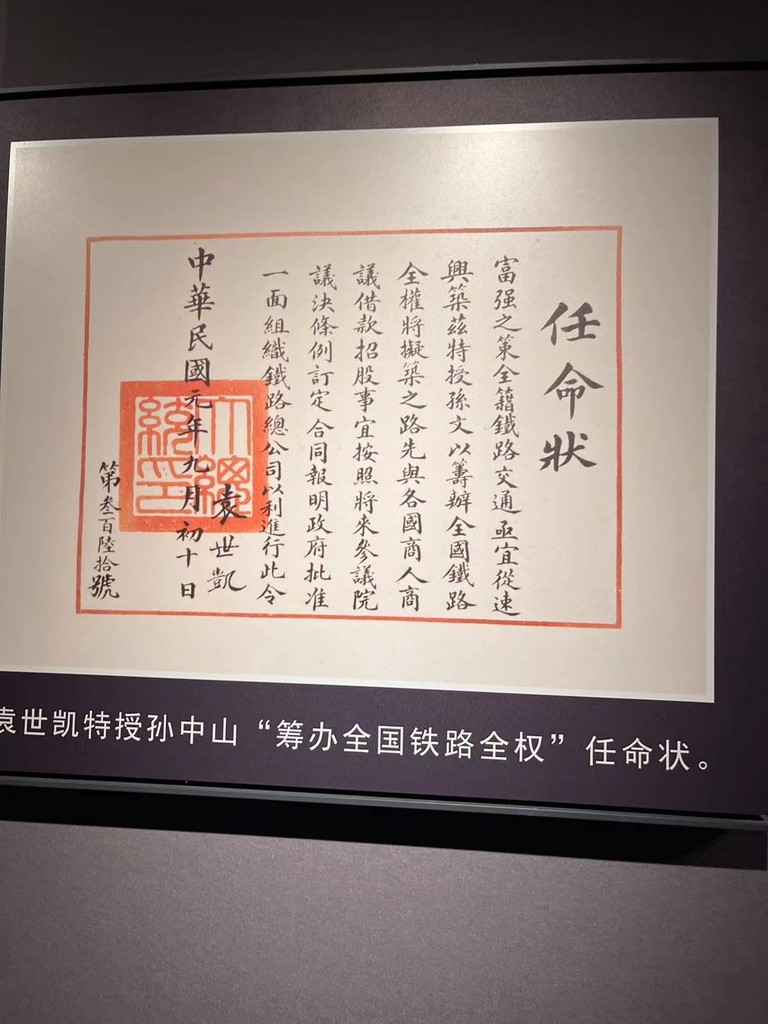 任命狀
富强之策全籍鐵路交通亟宜從速
興築茲特授孫文以籌辦全國鐵路
全權將擬築之路先與各國商人商
議借款招股事宜按照將來參議院
議決條例訂定合同報明政府批准
一面組織鐵路總公司以利進行此令
袁世凱
中華民國元年九月初十日
大總統印
第叁百陸拾號
袁世凯特授孙中山“筹办全国铁路全权”任命状。